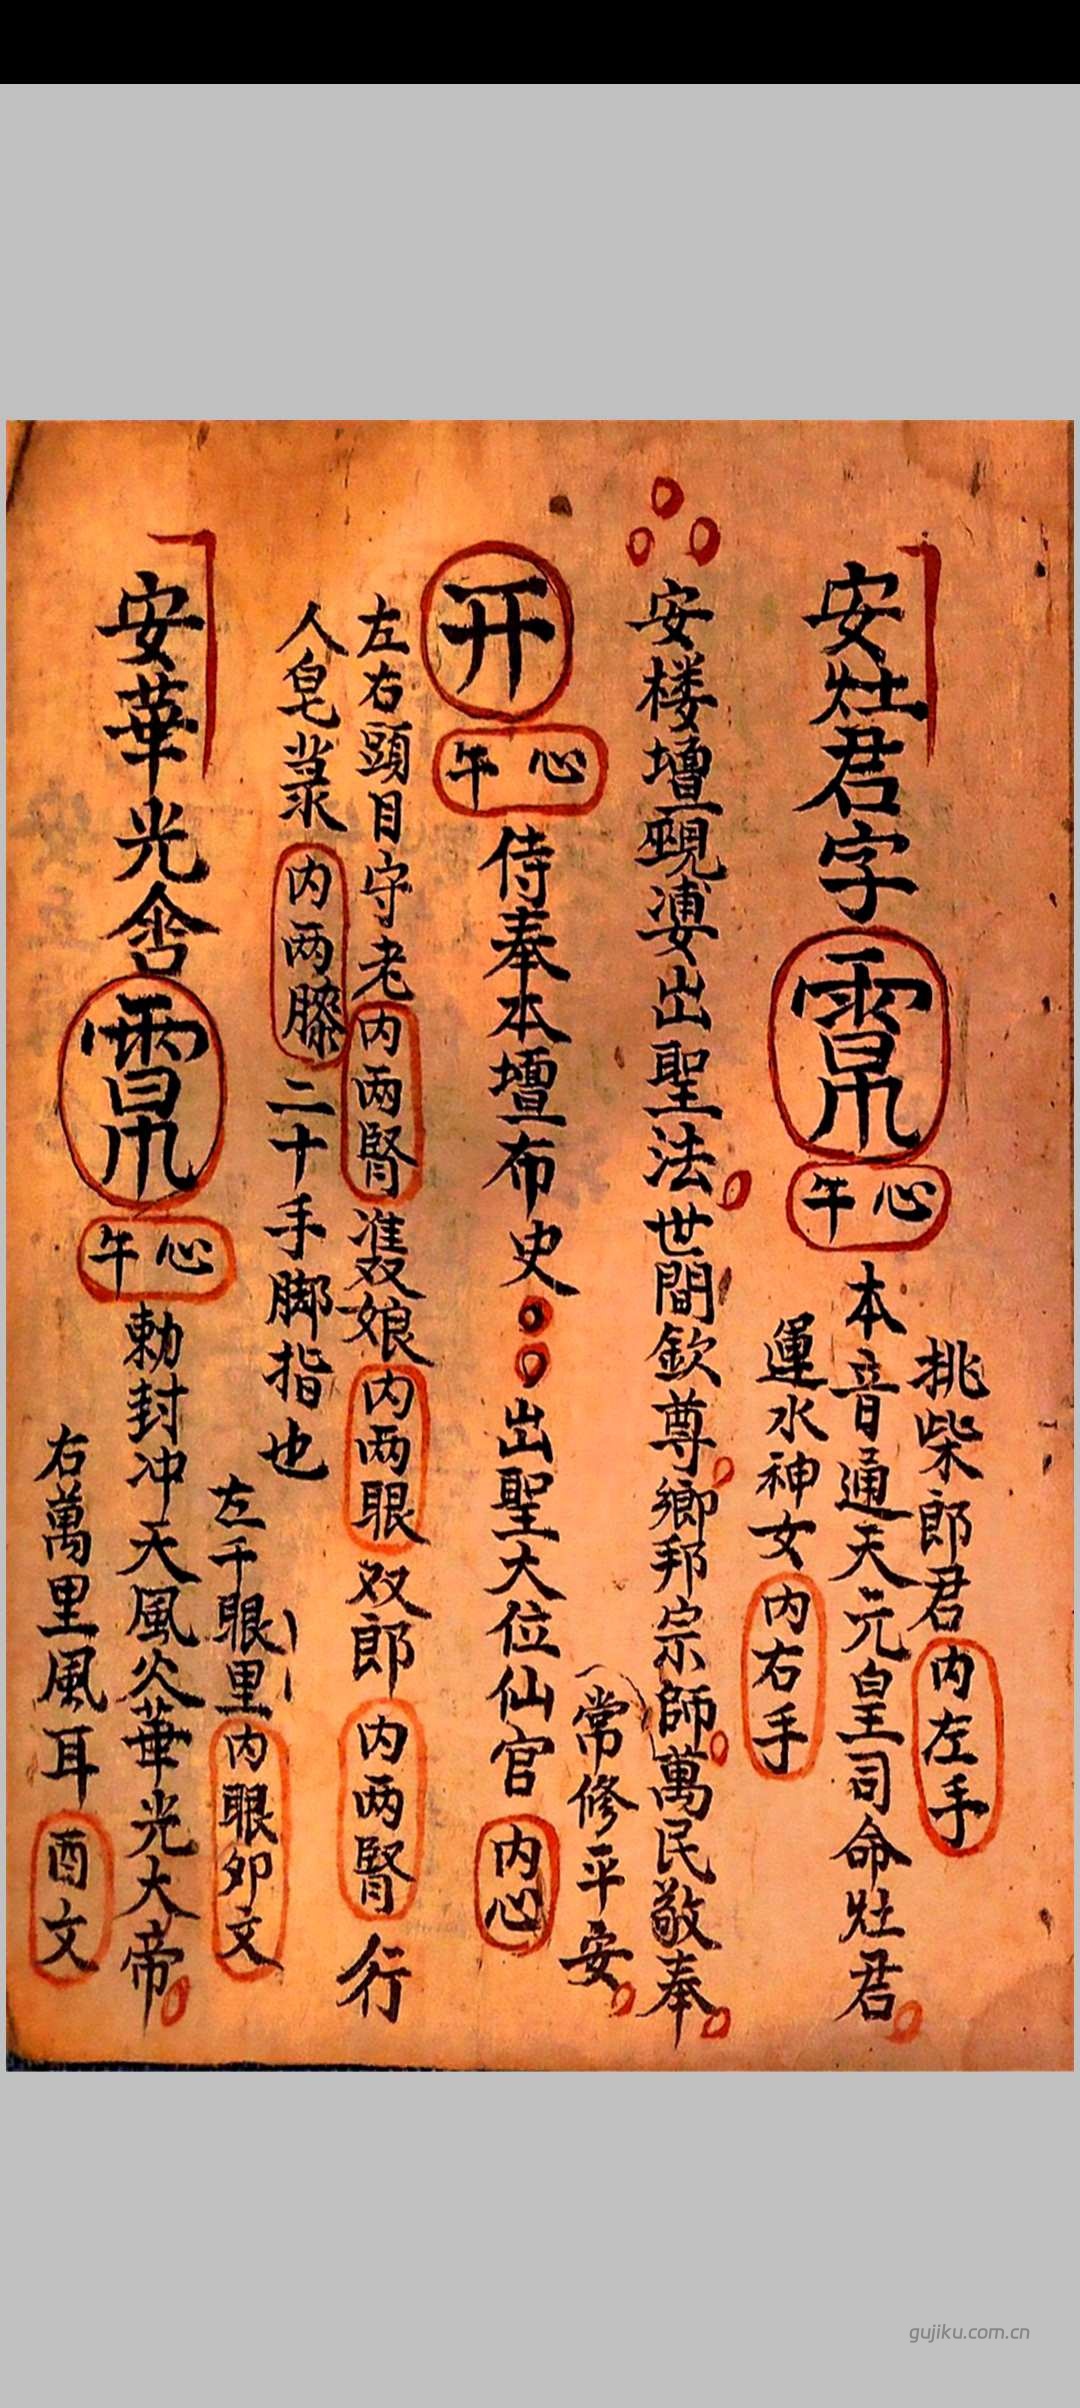 安灶君字
午心
挑柴郎君内左手
本音通天元皇司命灶君
運水神女内右手
安楼壇 出聖法世間欽尊鄉邦宗師萬民敬奉
常修平安
开
午心
侍奉本壇布史 出聖大位仙官内心
左右頭目守老内两腎 娘内两眼双郎内两腎行
人皂 内两膝二十手脚指也
安華光
午心
左千眼里内眼卯文
勅封冲天風火華光大帝
右萬里風耳酉文
gujiku.com.cn